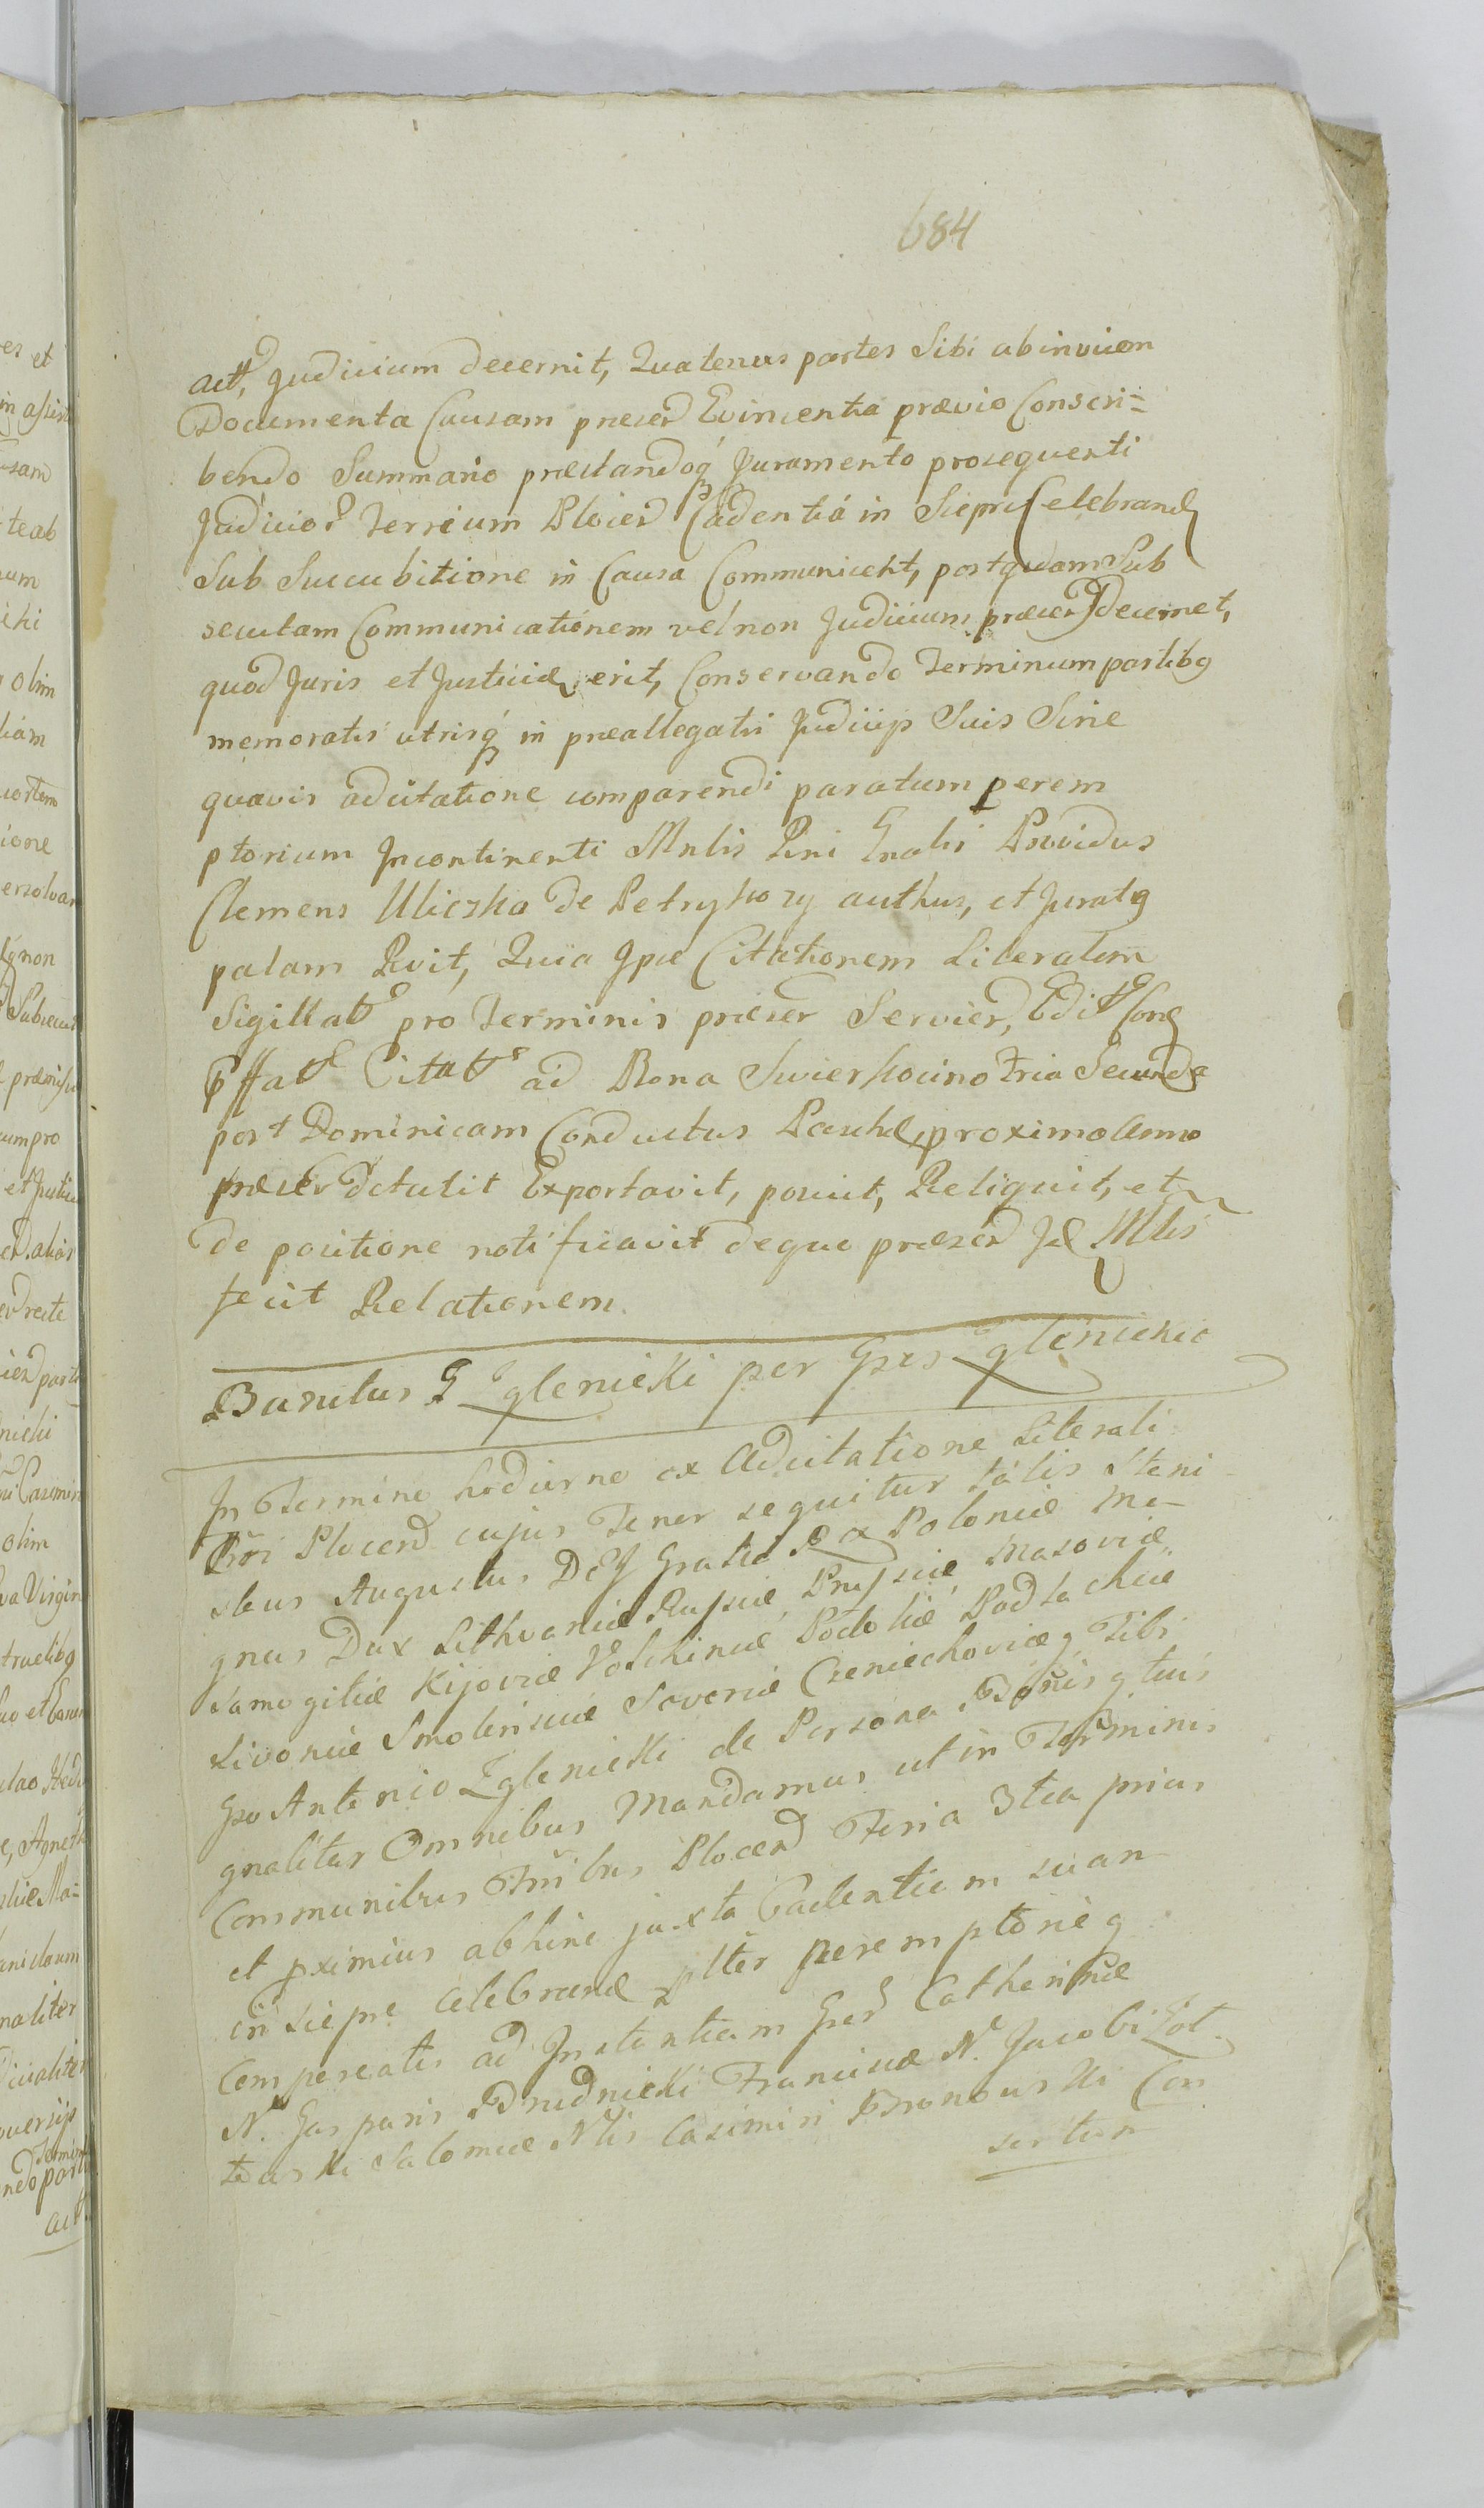 684
actt, Judicium decernit, Quatenus partes Sibi abinvicem
Documenta Causam præsen Evincentia prævio Conscri=
bendo Summario præstandoq Juramento prosequenti
Judicior Terrium Plocen Cadentia in Sieprc Celebrand
Sub Succubitione in Causa Communicent, postquam Sub
secutam Communicationem vel non Judicium præsen decernet,
quod Juris et Justiciæ erit, Conservando Terminum partibg
memoratis utrisq in præallegatis Judicijs Suis Sine
quavis adcitatione comparendi paratum perem
ptorium Incontinenti Mnlis Rni Gnalis Providus
Clemens Uliczka de Petrykozy authus, et Juratg
palam Rvit, Quia Ipse Citationem Literalem
Sigillatt pro Terminis præsen Servien, Editt Cone
Effatt Citatt ad Bona Swierkocino Fria Secunda
post Dominicam Conductus Paschæ proximo Anno
præsen detulit Exportavit, posuit, Reliquit, et
de positione notificavit deque præsen Jd Mlis
fecit Relationem.
Banitus G Zglenicki per Gres Zglenickie
In Termino hodierno ex Adcitatione Literali
Tri Plocen cujus Tenor sequitur talis Stani
slaus Augustus DEJ Gratia Rex Poloniæ Ma-
gnus Dux Lithvaniæ Russiæ Prussiæ Masoviæ
Samogitiæ Kijoviæ Volhiniæ Podoliæ Podlachiæ
Livoniæ Smolensciæ Severiæ Czerniechoviæq Tibi
Gso Antonio Zglenicki de Persona Bonisq tuis
gnalitus Omnibus Mandamus ut in Terminis
Communibus Trribus Plocen Feria 3tia prius
et pximius abhinc juxta Cadentiam suam
in Sieprc Celebrand plter peremptorieq
Compereatis ad Instantiam Gres Catherinæ
N. Gasparis Rudnicki Franciscæ N. Jacobi Zol
towski Salomeæ Nlis Casimiri Bronowski Con
sortum